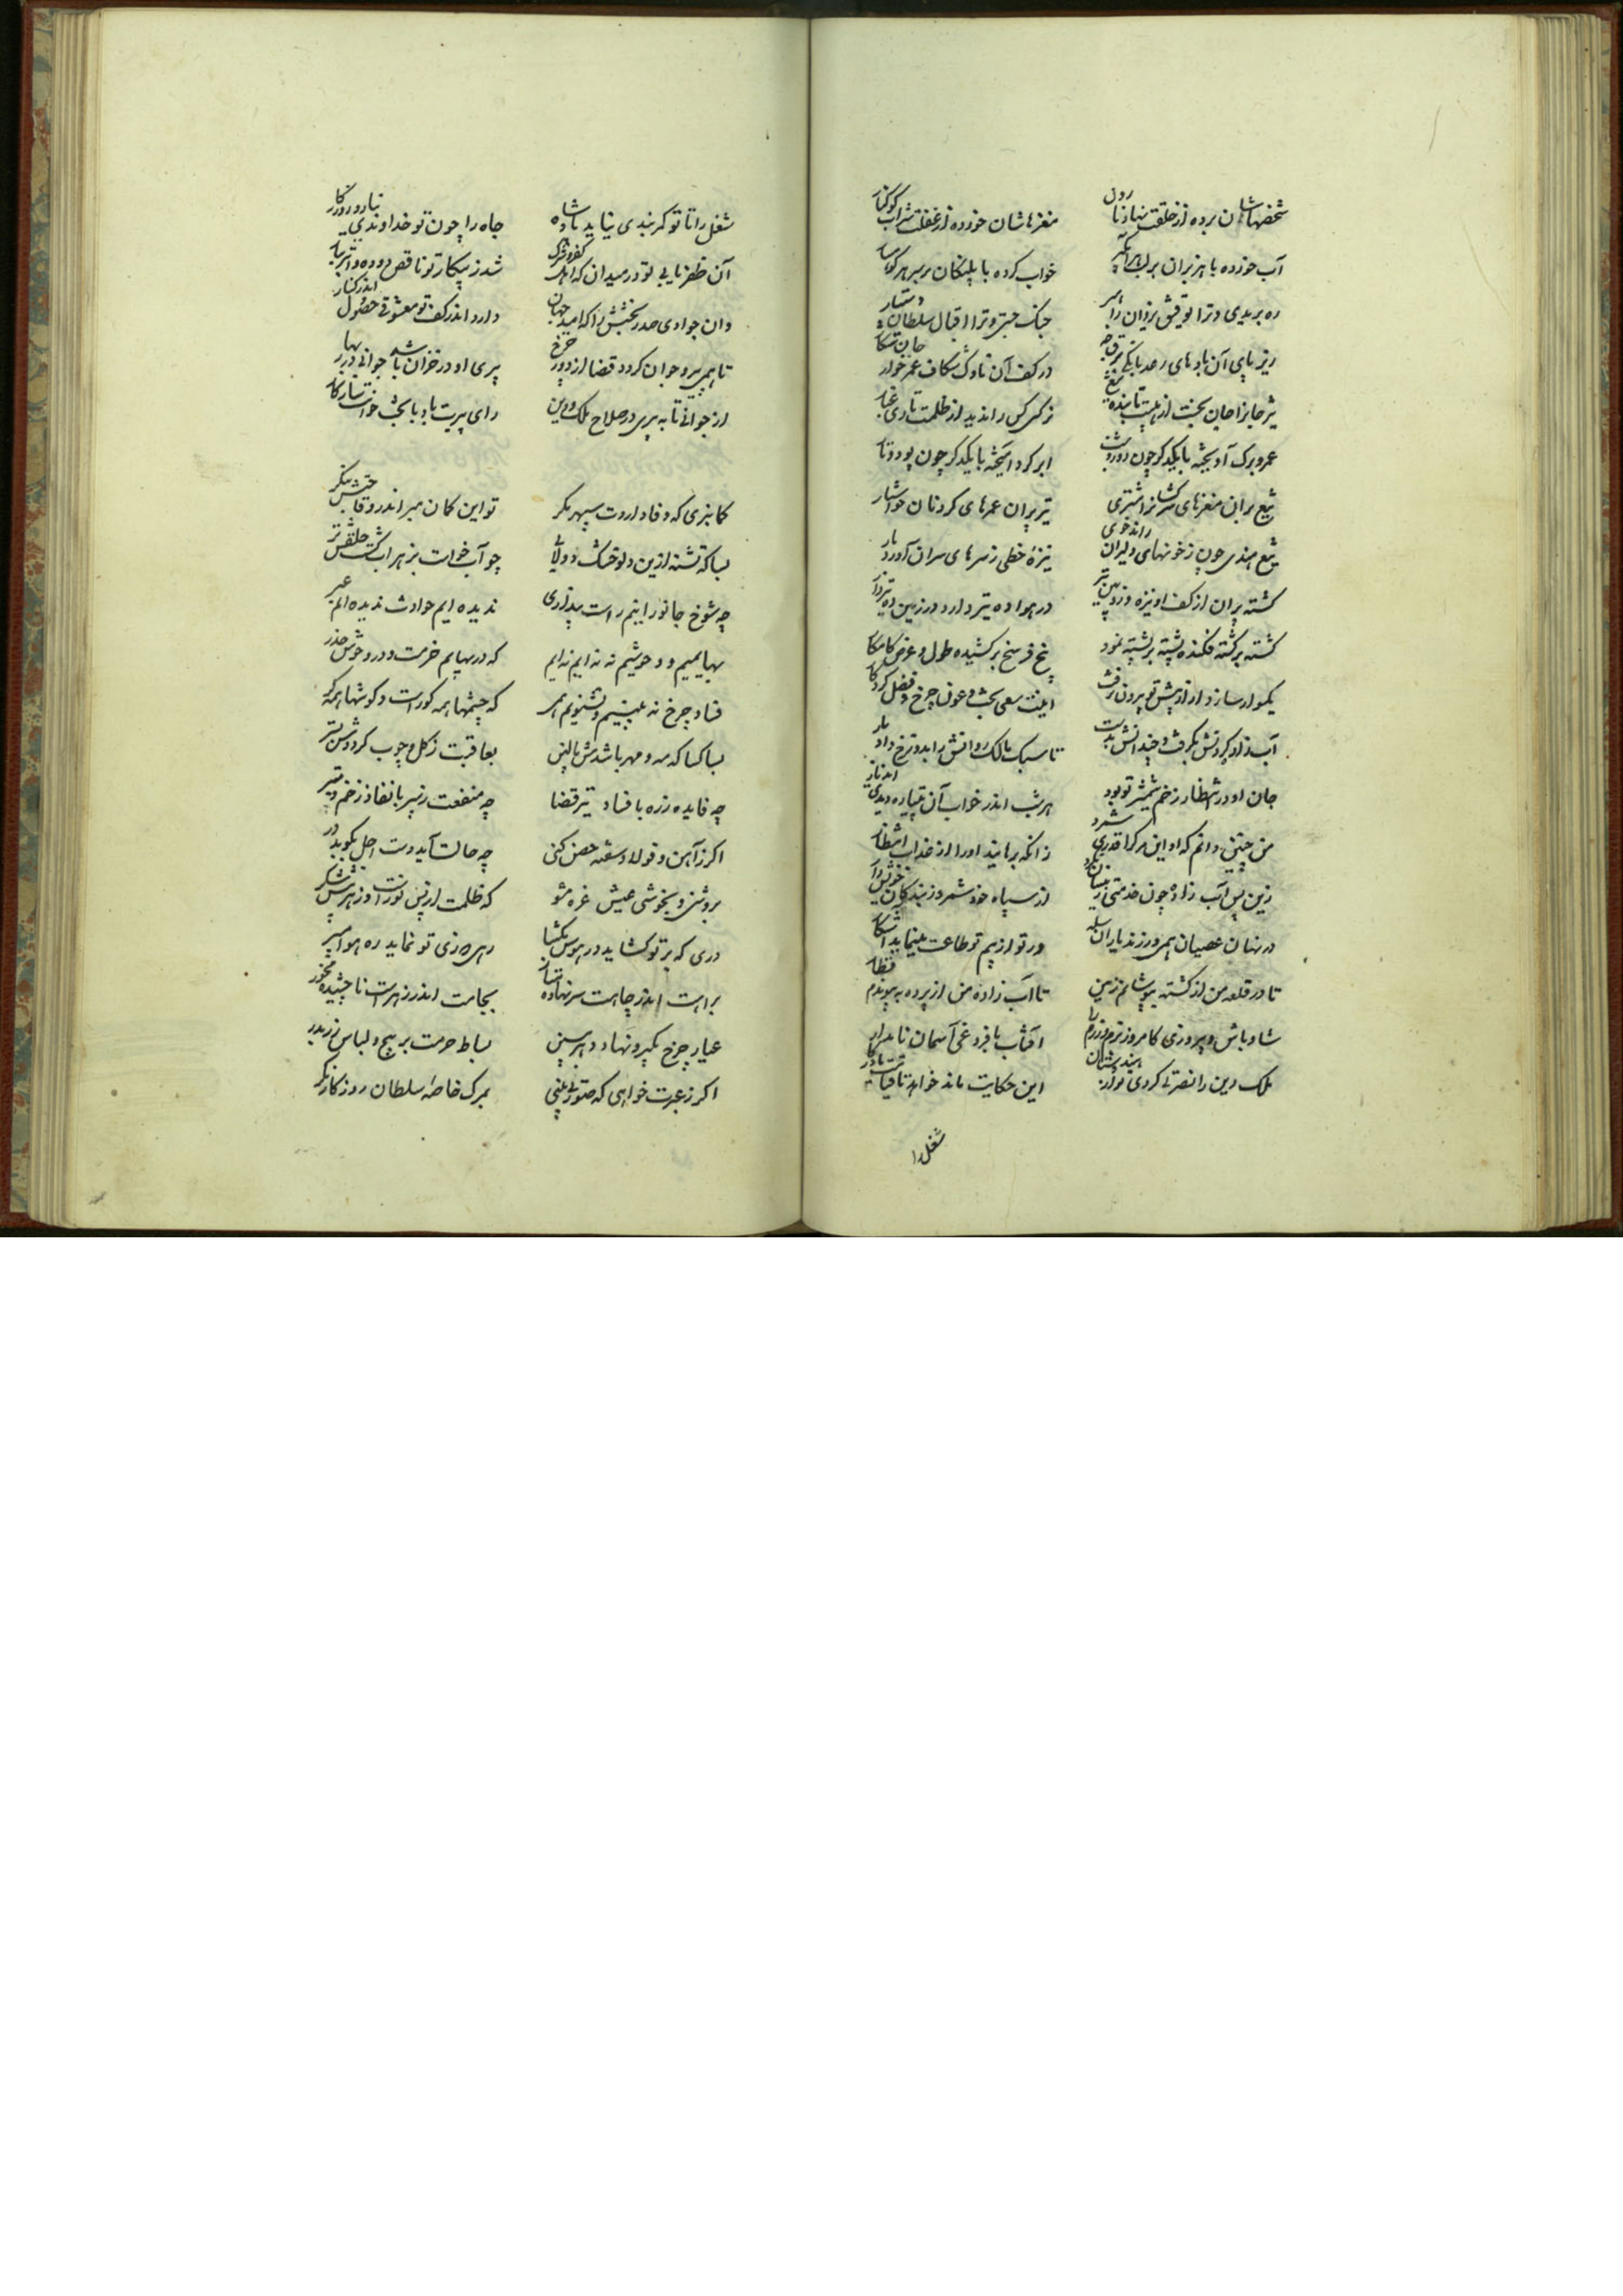 شخصهاشان برده از خلقت نهاد نارون
مغزهاشان خورده از غفلت شراب کوکنار
آب خورده با هزبران بر لب هر آبگیر
خواب کرده با پلنگان بر سر هر کوهسار
ره بریدی و ترا توفیق یزدان راهبر
جنگ جستی و ترا اقبال سلطان دستیار
زیر پای آن بادهای رعد بانگ برق جه
در کف آن ناوک شکاف عمر خوار جان شکار
نرگس را ندید از ظلمت تاری غبار
عمر و برگ آویخته با یکدگر چون
ابر گرد آمیخته با یکدگر چون پود و تار
تیغ بران مغزهای سرکشان را مشتری
تیر پران عمرهای گردنان خواستار
تیغ هندی چون ز خونهای دلیران راند جوی
نیزهٔ خطی ز سرهای سران آورد بار
گشته پران از کف او نیزه و زوبین و تیر
در هوا ده تیر دارد در زمین ده
کشته بر کشته فکنده پشته بر پشته نمود
پنج فرسخ بر کشیده طول و عرض کامکار
یکسوار ساز دار از پیش تو بیرون نرفت
اینت سعی بخت و عون چرخ و فضل کردگار
آب زاد گردنش بگرفت و چندانش بداشت
تا سبک مالک روانش را بدوزخ داد بار
جان او در انتظار زخم شمشیر تو بود
هر شب اندر خواب آن پتیاره دیدی
من چنین دانم که او این مرگ را قدری شمرد
زانکه برهانید او را از عذاب انتظار
زین پس آب زاد چون خدمتی
از سپاه خود شمر وز بندگان خویش دار
در نهان عصیان همی ورزند یاران
ور تو از بیم تو طاعت مینماید آشکار
تا در قلعه من از کشته بپوشانم زمین
تا آب زاده من از پرده به پیوندم قطار
شاد باش و پیروزی کامروز تو رزم را
آفتاب با فروغی آسمان نامدار
ملک دین را نصرتی کردی
این حکایت ماند خواهد تا قیامت یادگار
شغل را
شغل را تا تو کمر بندی نیاید شاه
جاه را چون تو خداوندی نیارد روزگار
آن ظفر یابی تو در میدان که اهل کفر و شرک
شد ز پیکار تو ناقص دوده و
وان جوادی صدر بخشش را که امید جهان
دارد اندر کف تو معشوق حصول اندر کنار
تا همی پیر و جوان گردد قضا از دور چرخ
پیری او در خزان باشد جوانی در بهار
از جوانی تا به پیری در صلاح ملک و دین
رای پیرت باد با بخت جوانت سازگار
گمان بری که وفا داردت سپهر مگر
تو این گمان مبر اندر وقاحتش بنگر
بسا که تشنه ازین دلو خشک دولابی
چو آب خواست بزهر آب گشت حلقش تر
چه شوخ جانورانیم راست پنداری
ندیده ایم حوادث ندیده ایم عبر
بهایمیم و وحوشیم نه نه ایم نه ایم
که در بهایم خرمست و در وحوش حذر
فساد چرخ نه بینیم و نشنویم همی
که چشمها همه کور است و گوشها همه کر
بسا کسا که مه و مهر باشدش بالین
بعاقبت ز گل و چوب گرددش بستر
چه فایده زره با فساد تیر قضا
چه منفعت ز سپر با نفاذ زخم قدر
اگر ز آهن و فولاد سفته حصن کنی
چه حالت آید دست اجل بکوبد در
بروشنی و بخوشی عیش غره مشو
که ظلمت از پس نور است و زهر پیش شکر
دری که بر تو گشاید در هوس بگشا
رهی که زی تو نماید ره هوا مسپر
براهت اندر چاهست سر نهاده متاز
بجامت اندر زهر است ناچشیده مخور
عیار چرخ بگیر و نهاد دهر ببین
بساط حرمت برپیچ و لباس آز بدر
اگر ز عبرت خواهی که صورتی بینی
بمرگ خاصه سلطان روزگار نگر